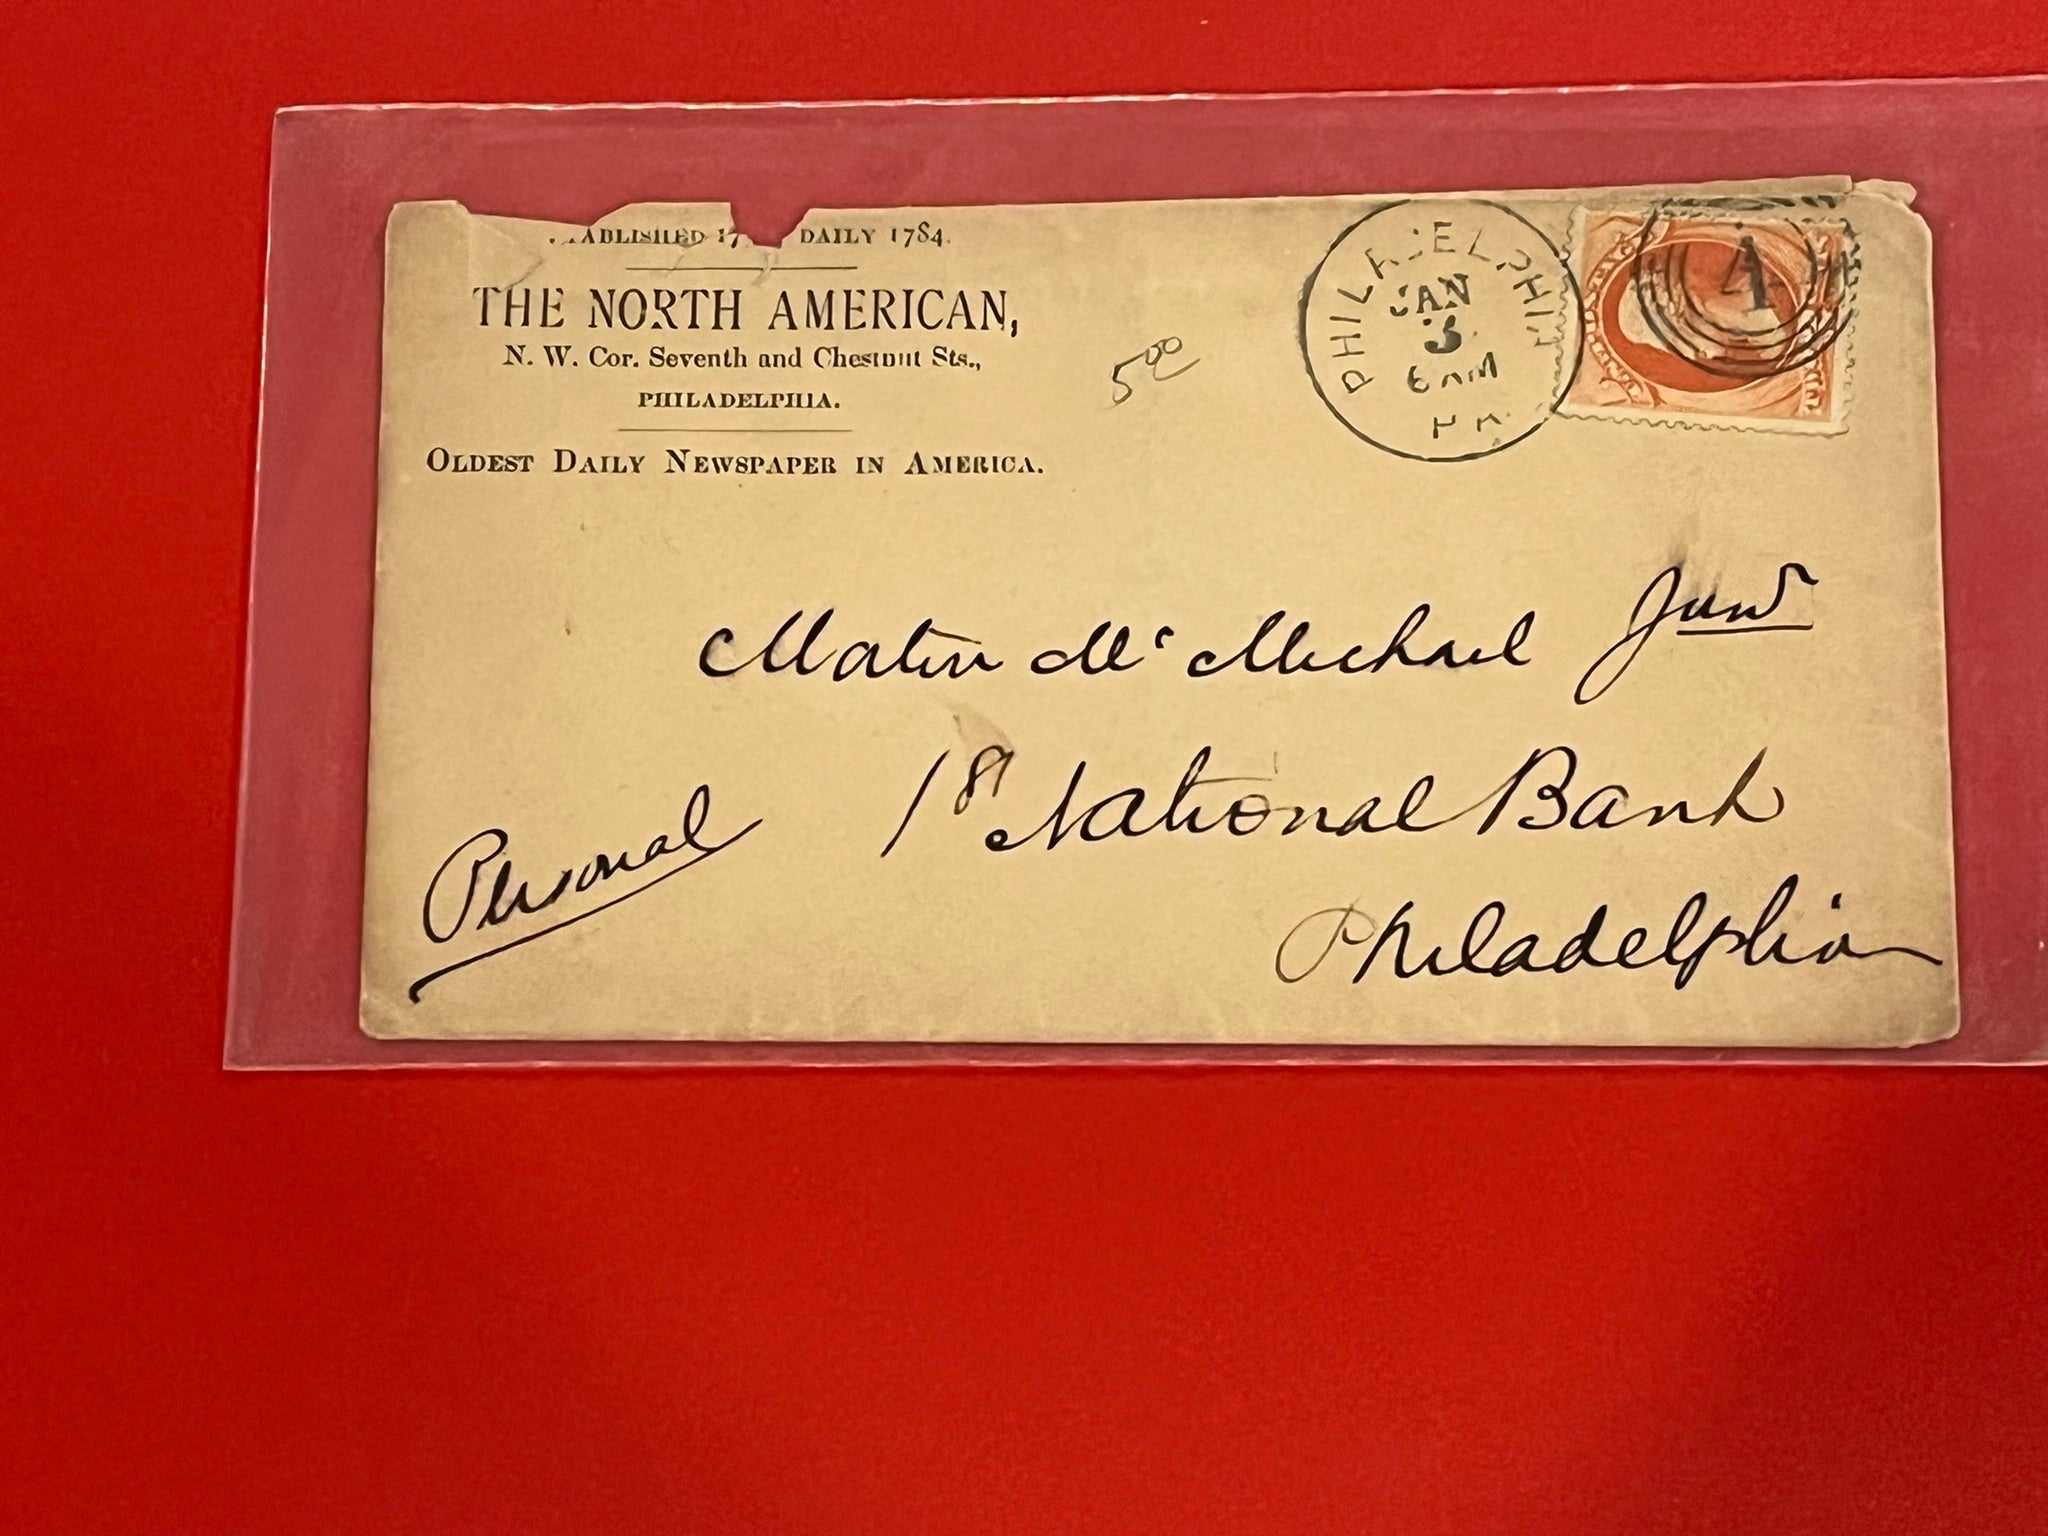 DAILY 1784.
THE NORTH AMERICAN,
N. W. Cor. Seventh and Chestnut Sts.,
PHILADELPHIA.
OLDEST DAILY NEWSPAPER IN AMERICA.
5 00
PHILADELPHIA
JAN
3
6 AM
PA.
4
Martin McMichael Junr
1st National Bank
Personal
Philadelphia